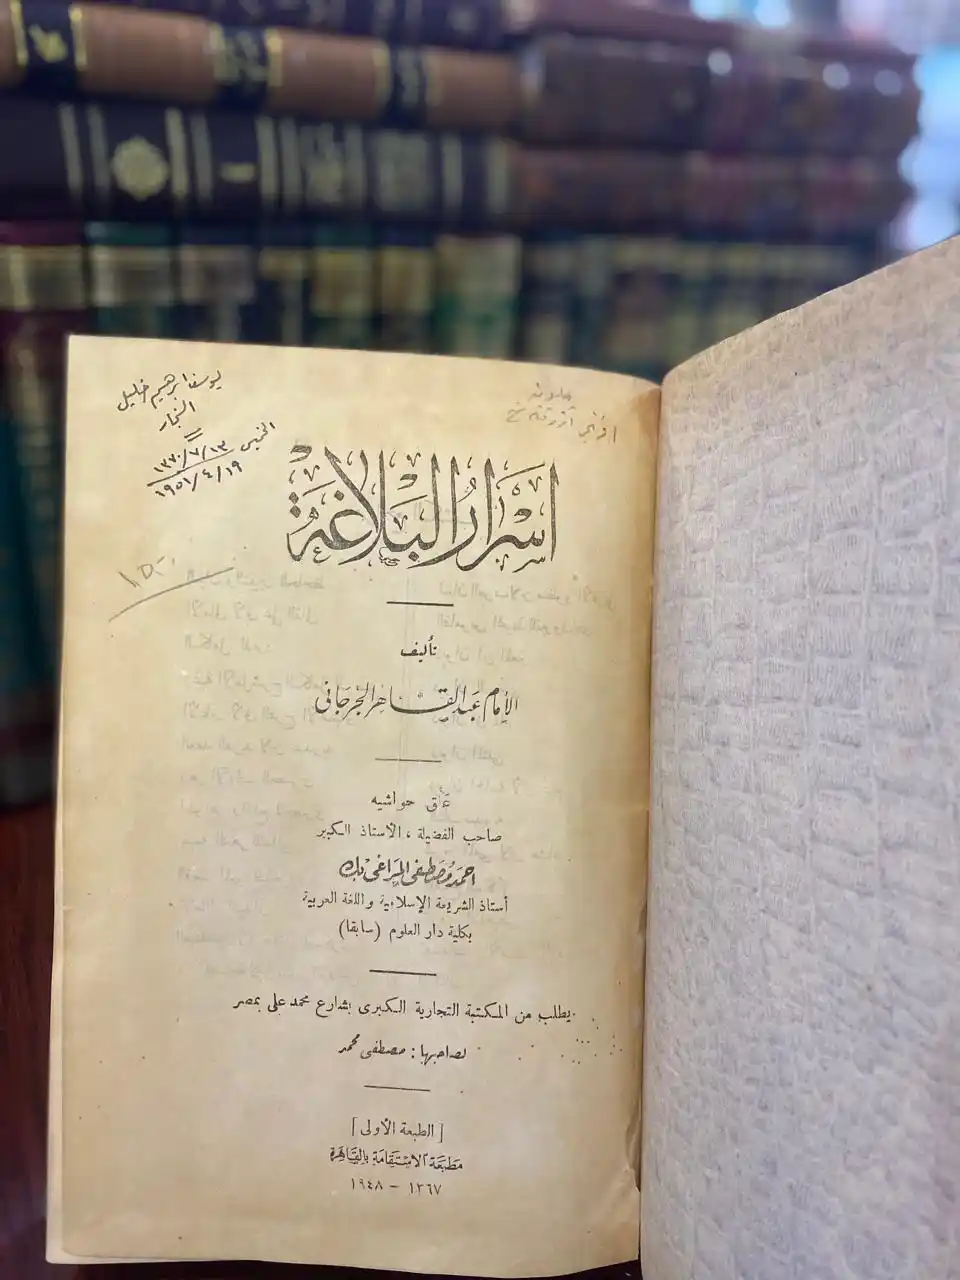 يوسف ابرهيم خليل
النجار
الخميس ١٣/٧/١٣٧٠
١٩/٤/١٩٥١
أسرار البلاغة
تأليف
الإمام عبد القاهر الجرجاني
علق حواشيه
صاحب الفضيلة ، الأستاذ الكبير
أحمد مصطفى المراغي بك
أستاذ الشريعة الإسلامية واللغة العربية
بكلية دار العلوم (سابقا)
يطلب من المكتبة التجارية الكبرى بشارع محمد علي بمصر
لصاحبها : مصطفى محمد
[ الطبعة الأولى ]
مطبعة الاستقامة بالقاهرة
١٣٦٧ - ١٩٤٨